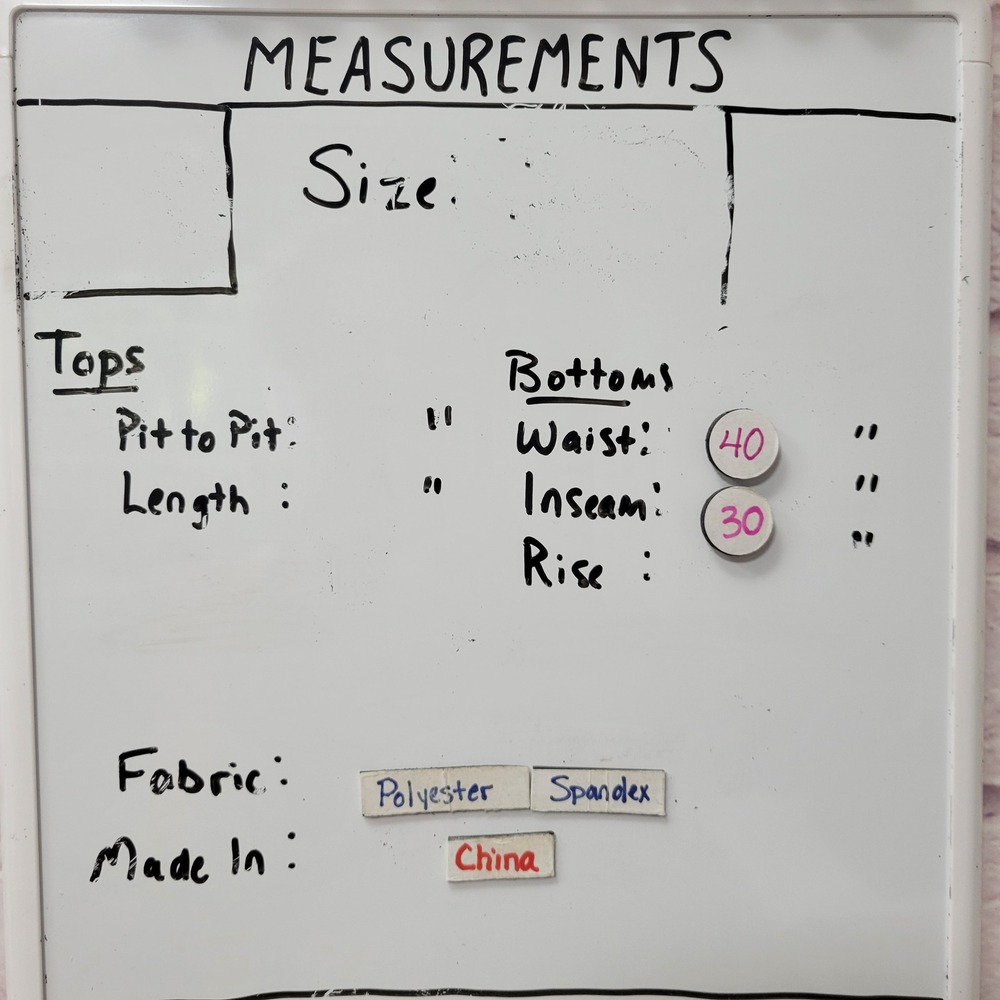 MEASUREMENTS
Size.
Tops
Pit to Pit: "
Length : "
Bottoms
Waist: 40 "
Inseam: 30 "
Rise : "
Fabric: Polyester Spandex
Made In: China